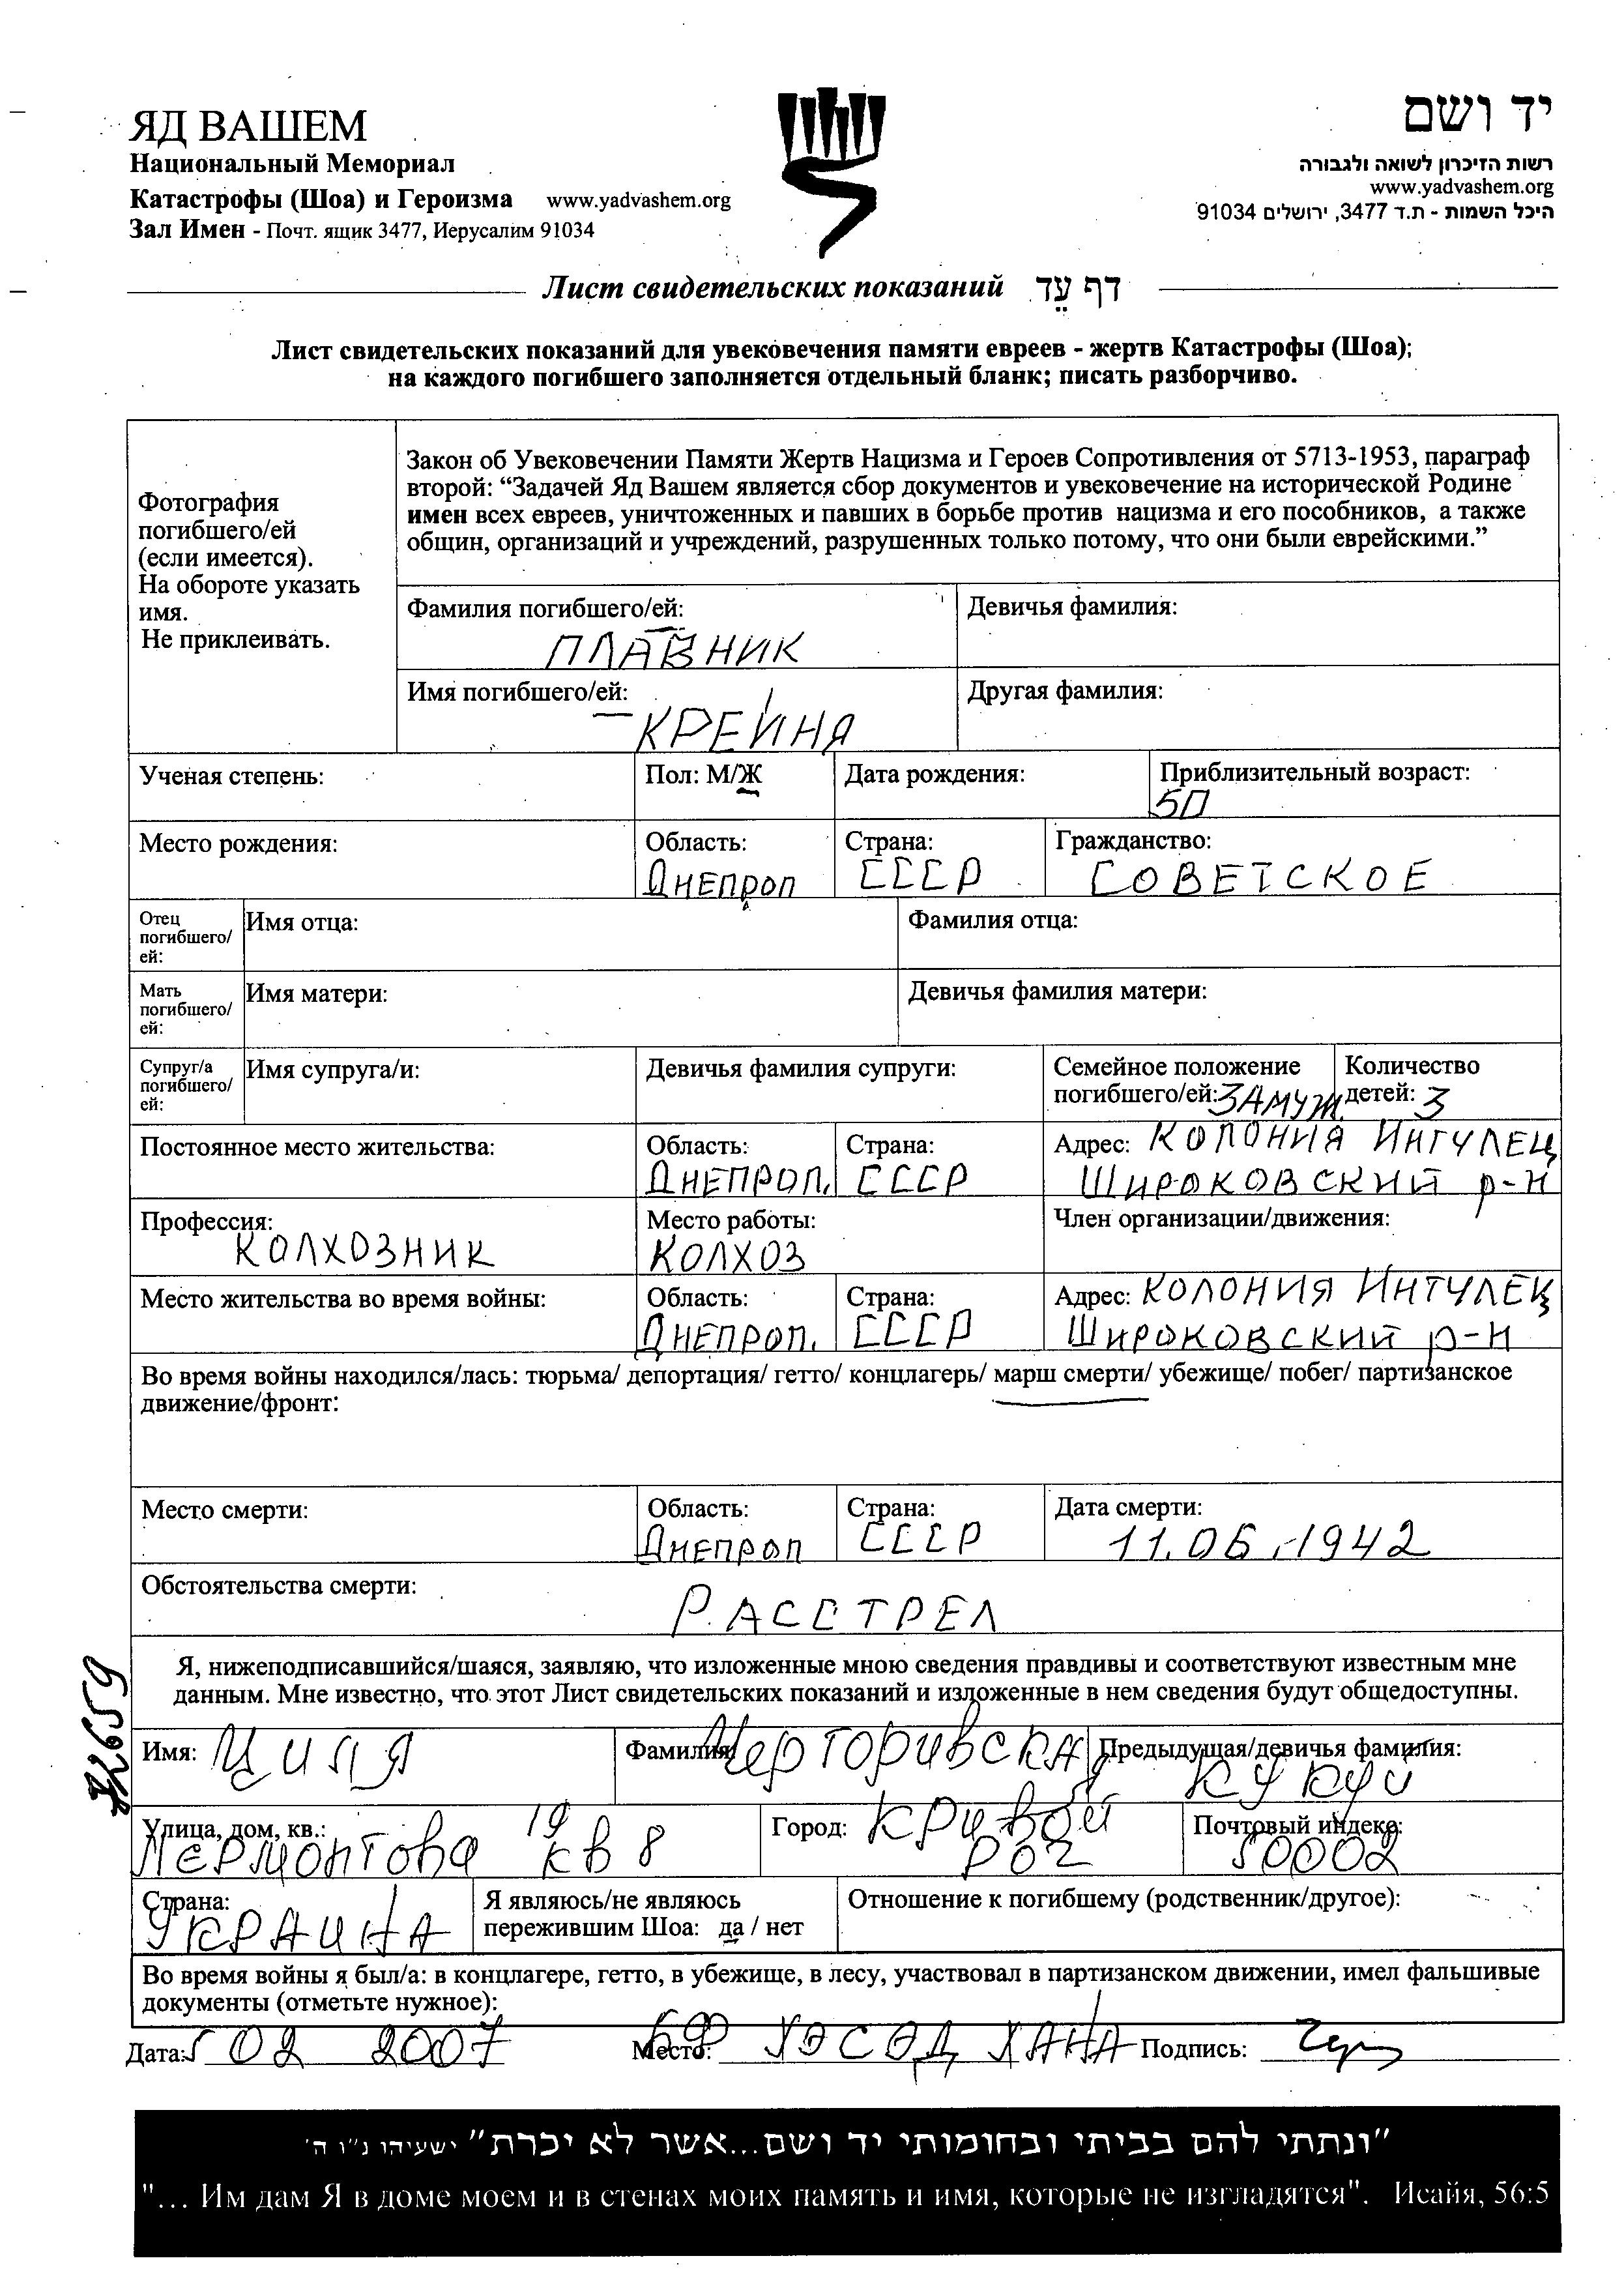 ЯД ВАШЕМ
Национальный Мемориал
Катастрофы (Шоа) и Героизма www.yadvashem.org
Зал Имен - Почт. ящик 3477, Иерусалим 91034
יד ושם
רשות הזיכרון לשואה ולגבורה
www.yadvashem.org
היכל השמות - ת.ד 3477, ירושלים 91034
Лист свидетельских показаний דף עֵד
Лист свидетельских показаний для увековечения памяти евреев - жертв Катастрофы (Шоа);
на каждого погибшего заполняется отдельный бланк; писать разборчиво.
Фотография
погибшего/ей
(если имеется).
На обороте указать
имя.
Не приклеивать.
Закон об Увековечении Памяти Жертв Нацизма и Героев Сопротивления от 5713-1953, параграф
второй: “Задачей Яд Вашем является сбор документов и увековечение на исторической Родине
имен всех евреев, уничтоженных и павших в борьбе против нацизма и его пособников, а также
общин, организаций и учреждений, разрушенных только потому, что они были еврейскими.”
Фамилия погибшего/ей: Девичья фамилия:
ПЛАВНИК
Имя погибшего/ей: Другая фамилия:
КРЕЙНЯ
Ученая степень: Пол: М/Ж Дата рождения: Приблизительный возраст:
50
Место рождения: Область: Страна: Гражданство:
ДНЕПРОП СССР СОВЕТСКОЕ
Отец
погибшего/
ей:
Имя отца: Фамилия отца:
Мать
погибшего/
ей:
Имя матери: Девичья фамилия матери:
Супруг/а
погибшего/
ей:
Имя супруга/и: Девичья фамилия супруги:
Семейное положение
погибшего/ей: ЗАМУЖ
Количество
детей: 3
Постоянное место жительства: Область: Страна: Адрес: КОЛОНИЯ ИНГУЛЕЦ
ДНЕПРОП. СССР ШИРОКОВСКИЙ р-н
Профессия: Место работы: Член организации/движения:
КОЛХОЗНИК КОЛХОЗ
Место жительства во время войны: Область: Страна: Адрес: КОЛОНИЯ ИНГУЛЕЦ
ДНЕПРОП. СССР ШИРОКОВСКИЙ р-н
Во время войны находился/лась: тюрьма/ депортация/ гетто/ концлагерь/ марш смерти/ убежище/ побег/ партизанское
движение/фронт:
Место смерти: Область: Страна: Дата смерти:
ДНЕПРОП СССР 11.06.1942
Обстоятельства смерти:
РАССТРЕЛ
Я, нижеподписавшийся/шаяся, заявляю, что изложенные мною сведения правдивы и соответствуют известным мне
данным. Мне известно, что этот Лист свидетельских показаний и изложенные в нем сведения будут общедоступны.
Имя: Циля Фамилия: Черторивская Предыдущая/девичья фамилия:
Кукуй
Улица, дом, кв.: 19 Город: Кривой Почтовый индекс:
Лермонтова кв 8 Рог 50002
Страна:
УКРАИНА
Я являюсь/не являюсь
пережившим Шоа: да / нет
Отношение к погибшему (родственник/другое):
Во время войны я был/а: в концлагере, гетто, в убежище, в лесу, участвовал в партизанском движении, имел фальшивые
документы (отметьте нужное):
Дата: 5 02 2007 Место: БФ ХЭСЭД ХАНА Подпись:
"ונתתי להם בביתי ובחומותי יד ושם...אשר לא יכרת" ישעיהו נ"ו ה'
"... Им дам Я в доме моем и в стенах моих память и имя, которые не изгладятся". Исайя, 56:5